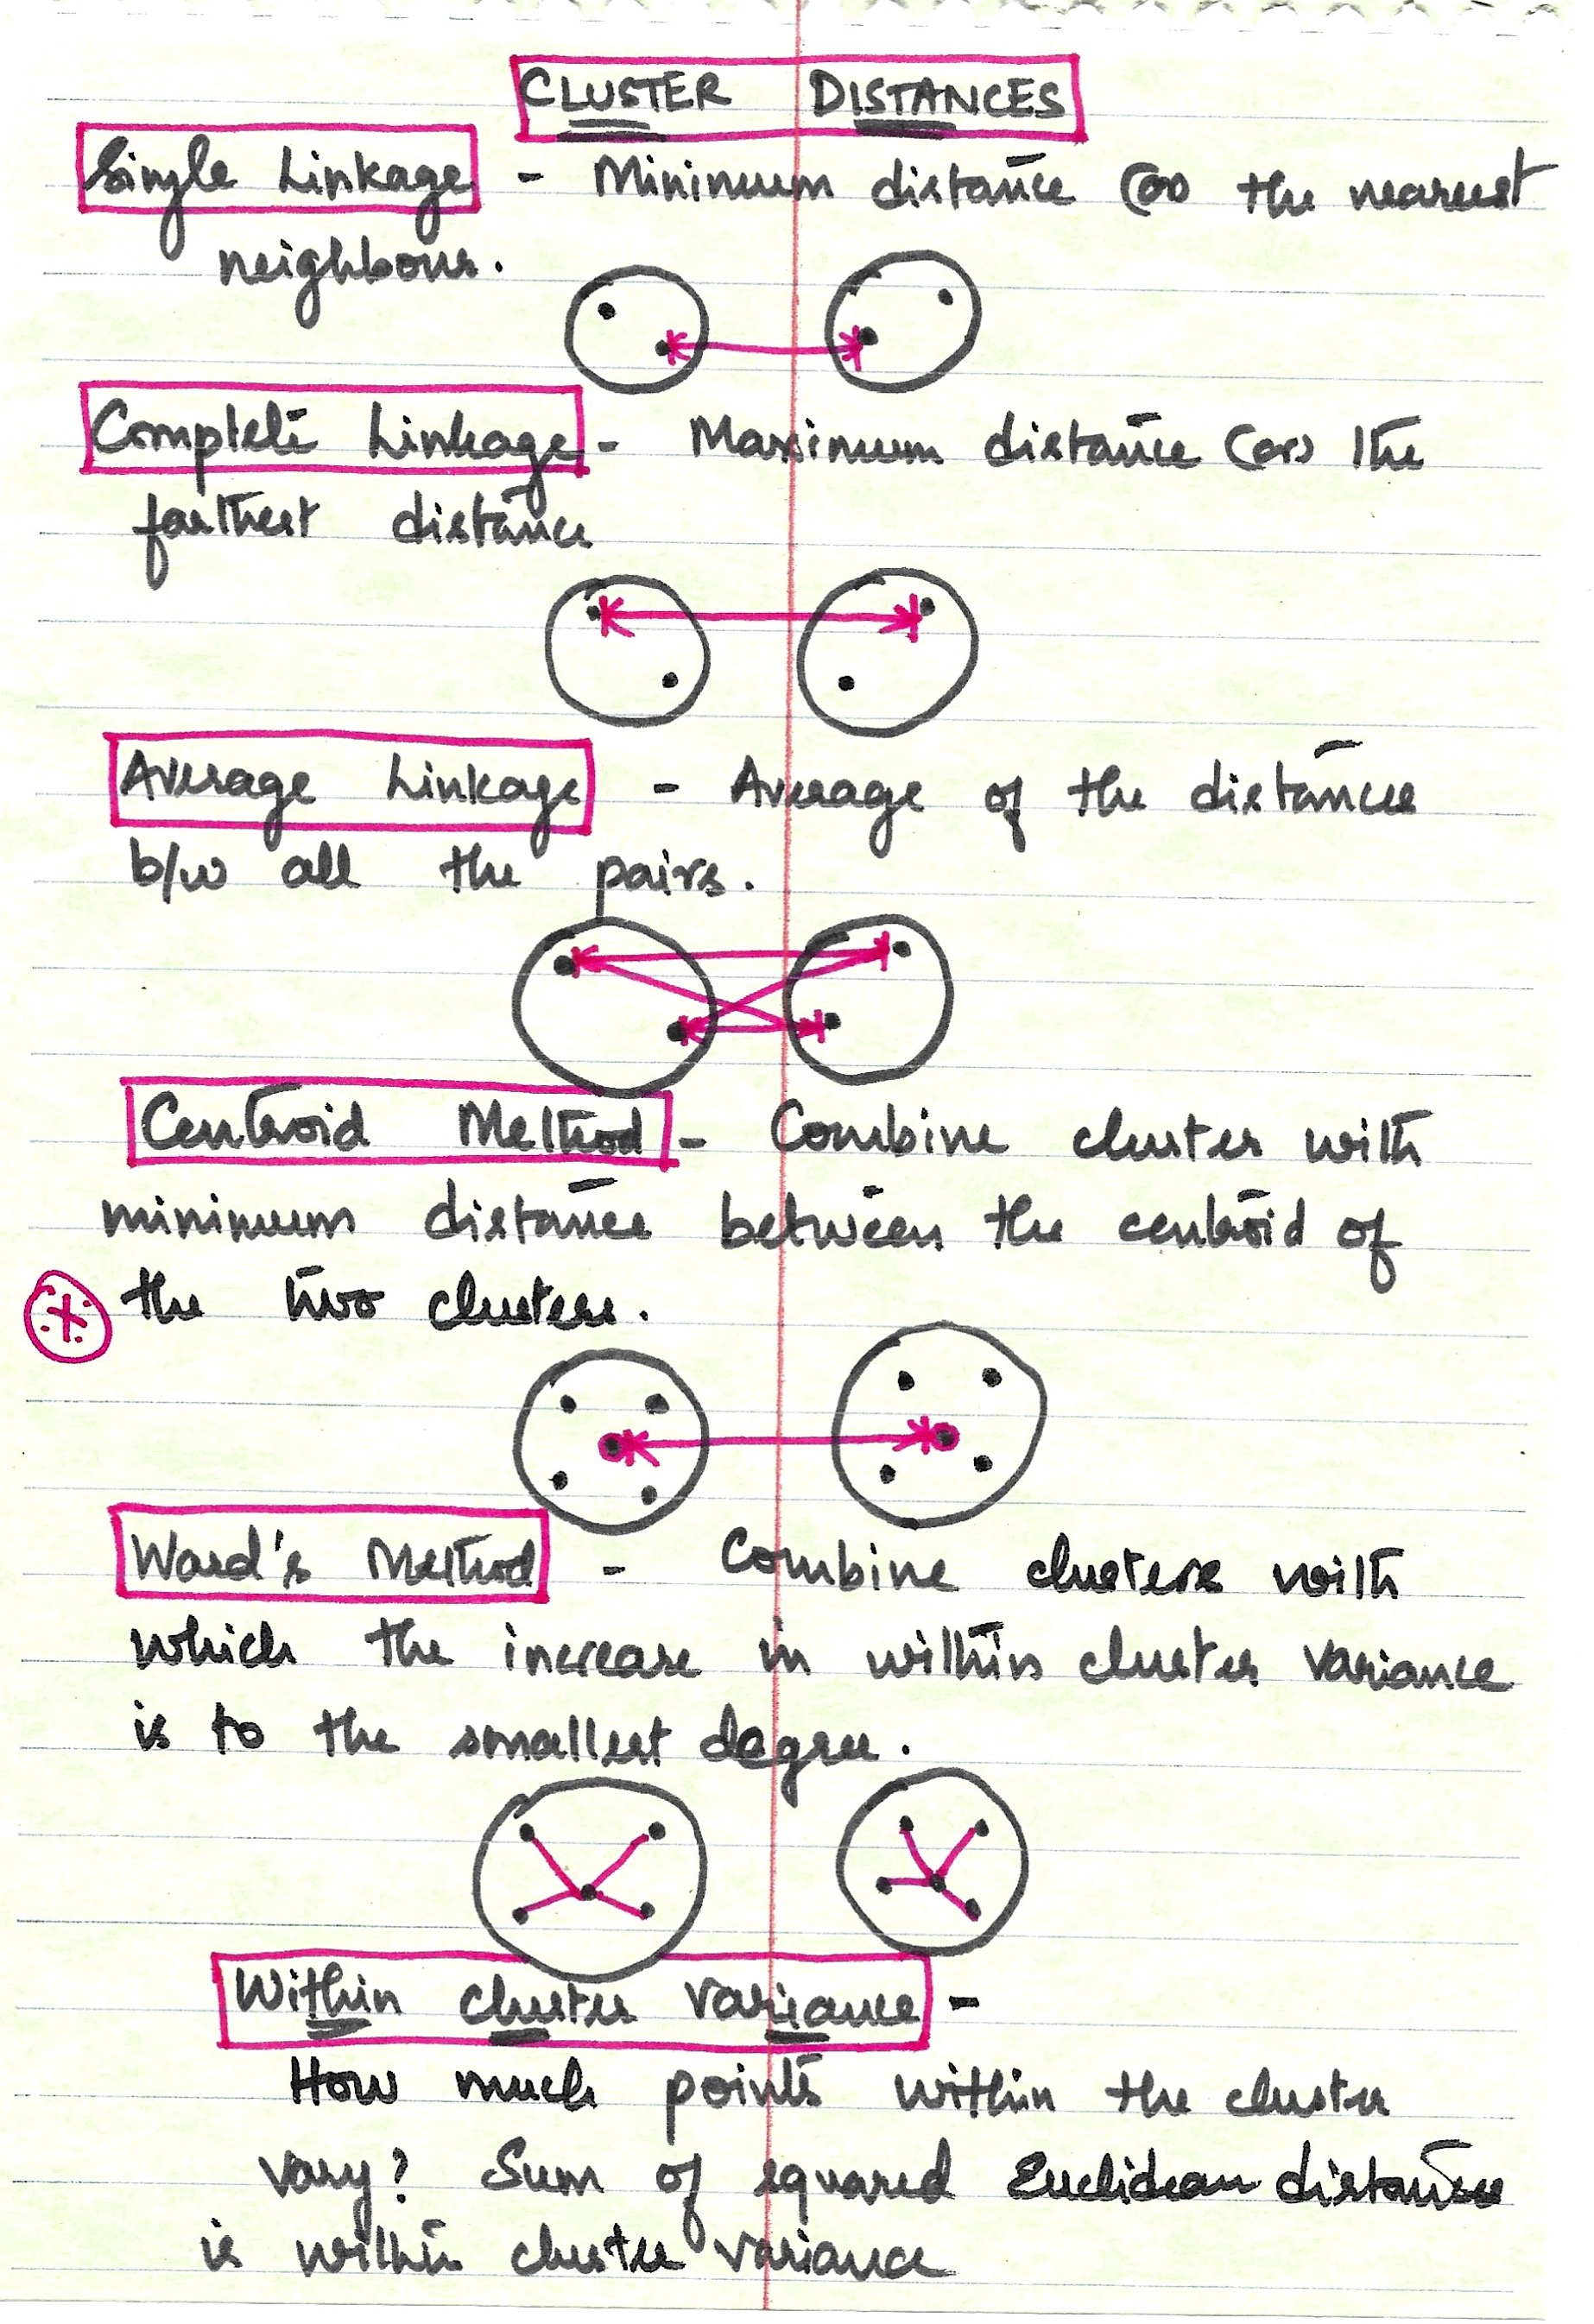 CLUSTER DISTANCES
Single Linkage - Minimum distance (or) the nearest
neighbour.
Complete Linkage - Maximum distance (or) the
farthest distance
Average Linkage - Average of the distances
b/w all the pairs.
Centroid Method - Combine cluster with
minimum distance between the centroid of
the two clusters.
Ward's Method - Combine clusters with
which the increase in within cluster variance
is to the smallest degree.
Within cluster variance -
How much points within the cluster
vary? Sum of squared Euclidean distance
is within cluster variance